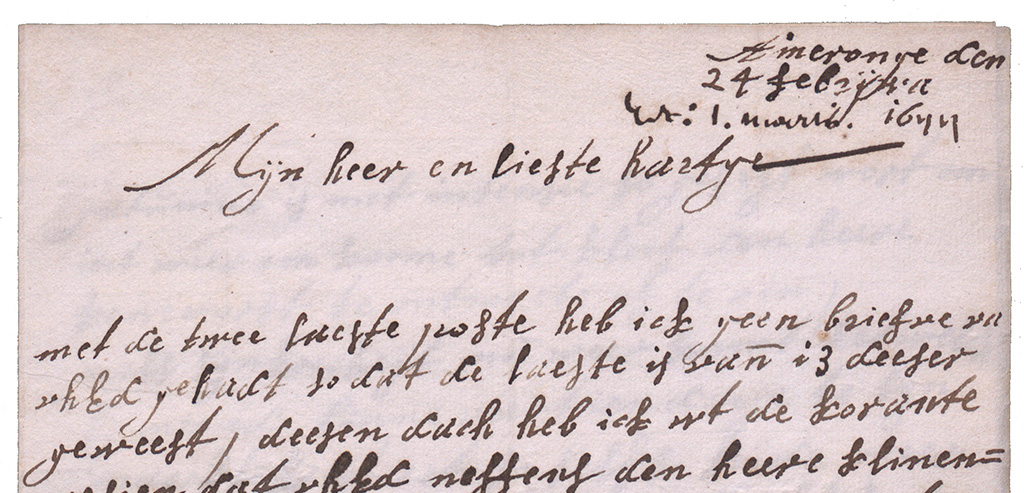 Ameronge den
24 febrijwa
Rt: 1. martii. 1677
Mijn heer en liefste hartge
met de twee laeste poste heb ick geen briefve va
vhEd gehadt so dat de laeste is van 13 deeser
geweest, deesen dach heb ick wt de korante
dat vhEd neffens den heere klinen=